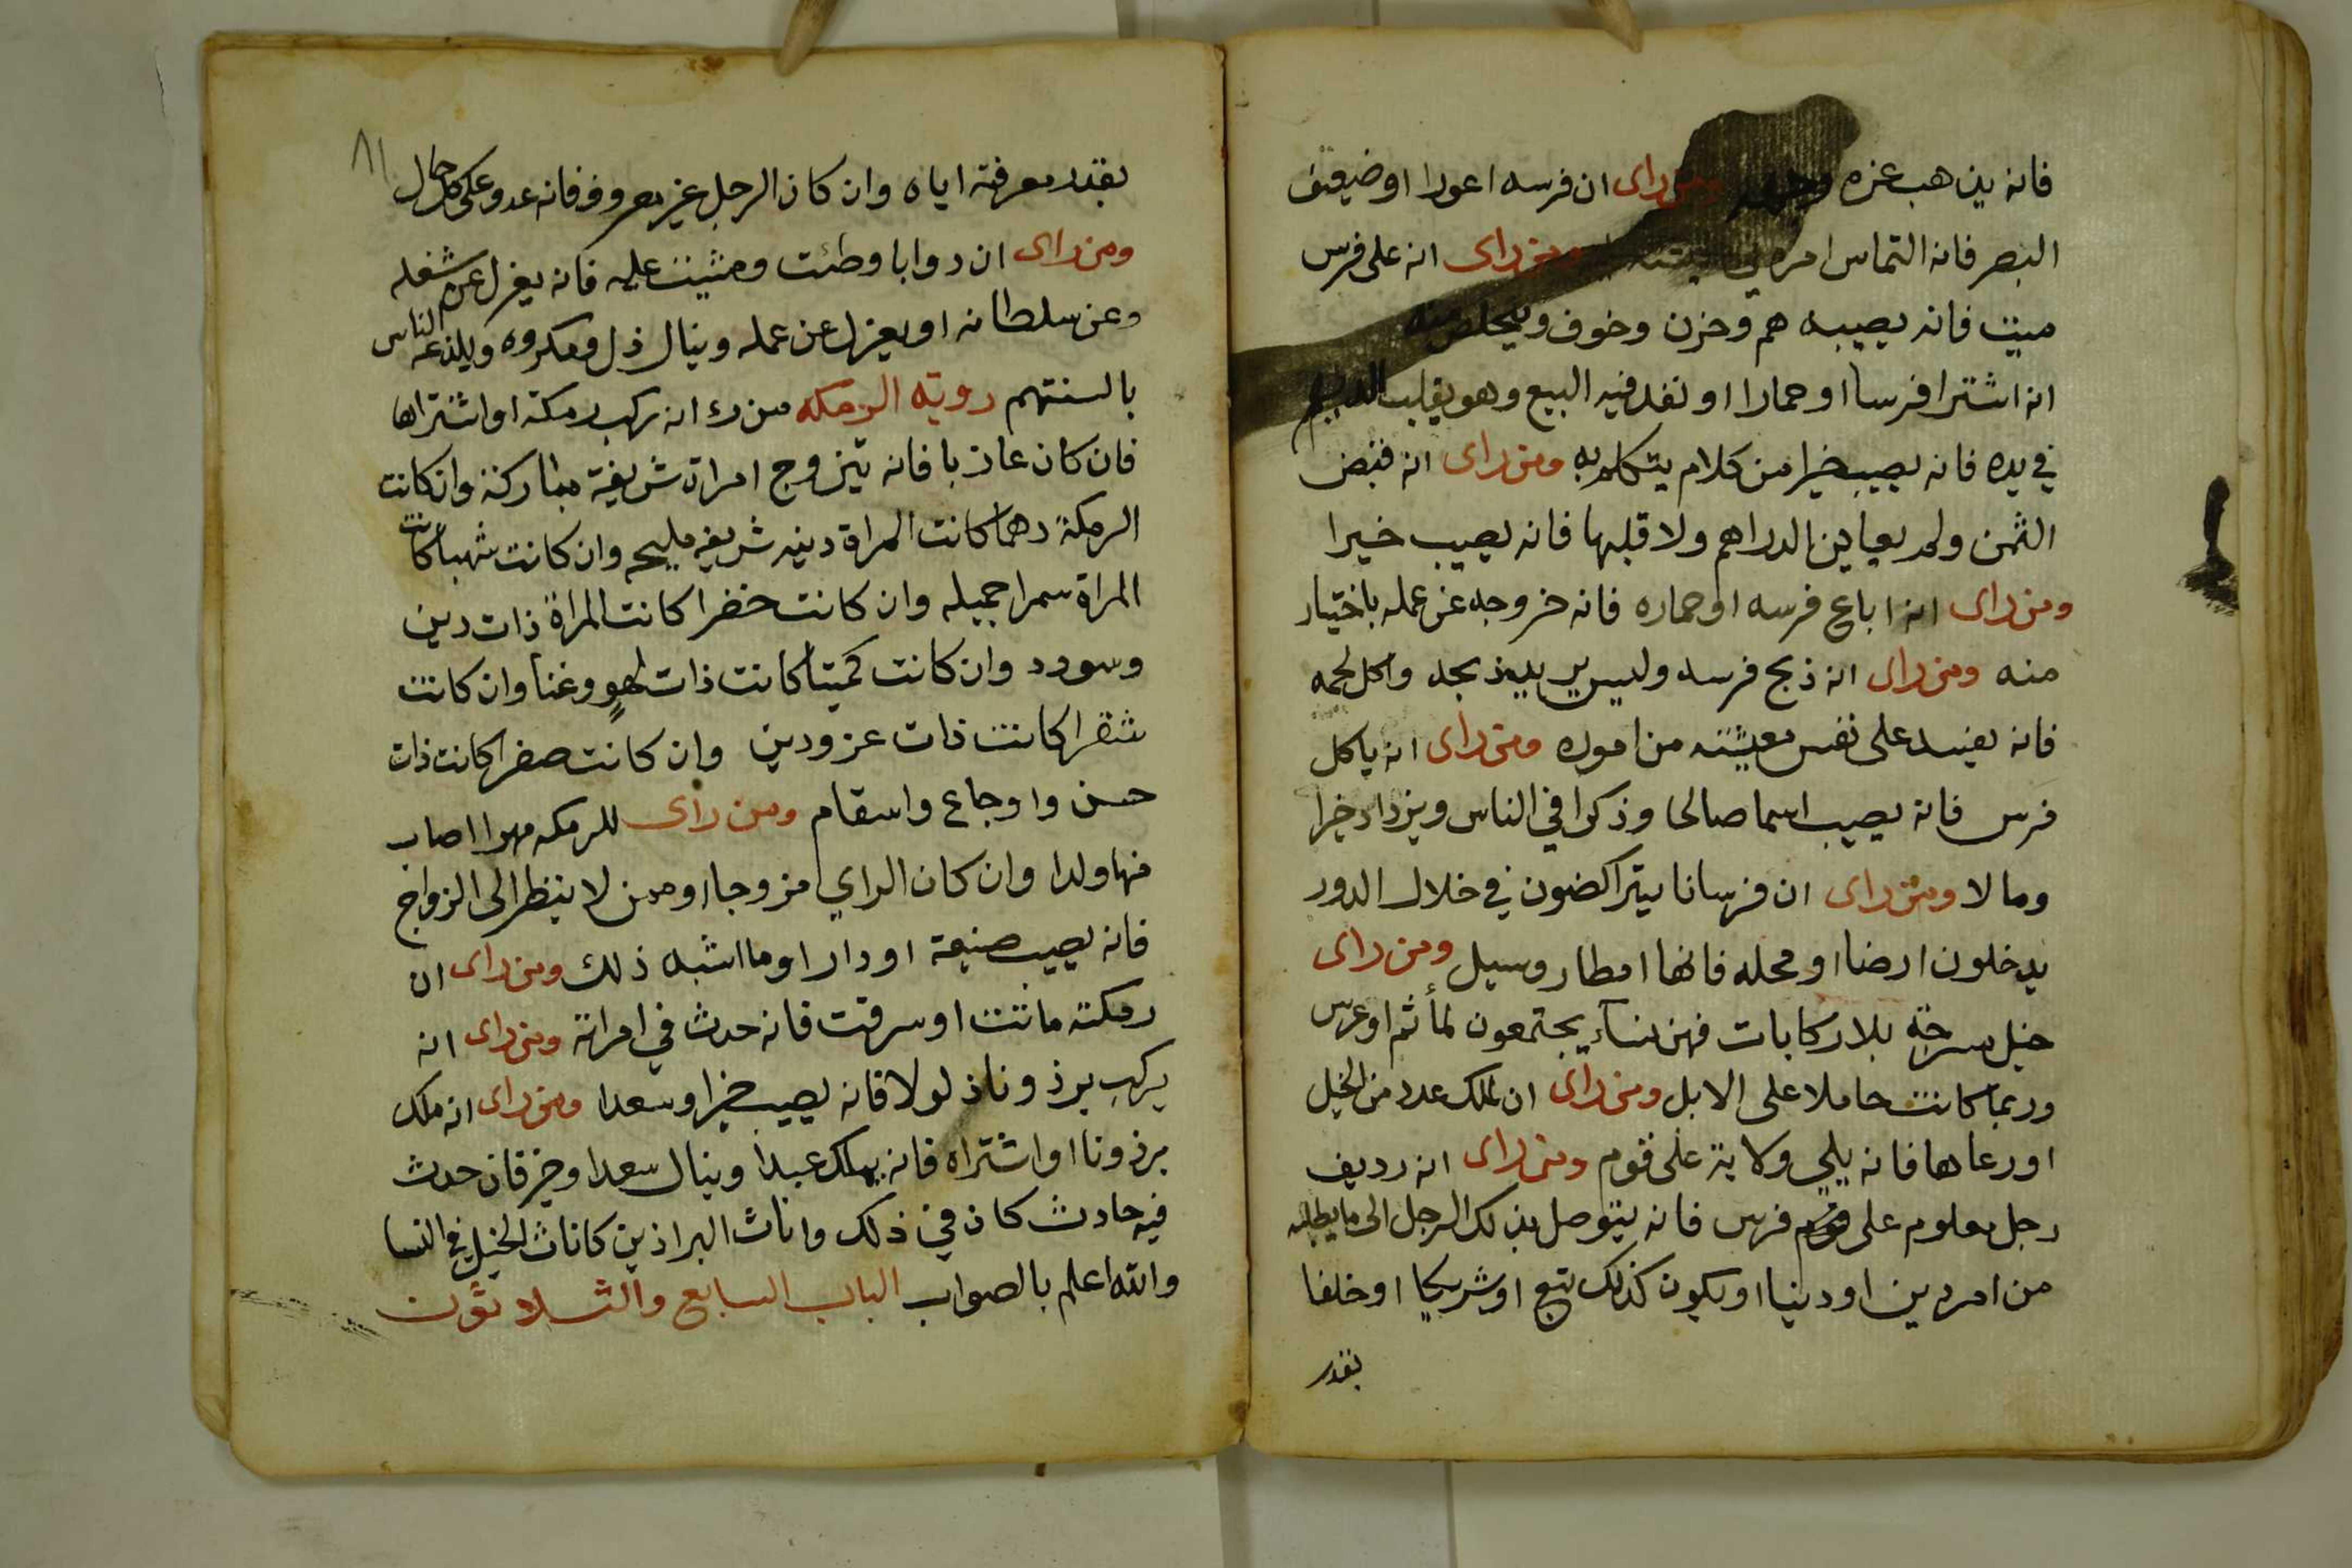 فانه يذهب عزه ومن راى ان فرسه اعورا او ضعيف
البصر فانه التماس امره في ومن راى انه على فرس
ميت فانه يصيبه هم وحزن وخوف ويتخلص منه
انه اشترا فرسا او حمارا او نفد فيه البيع وهو يقلب الدراهم
في يده فانه يصيب خيرا من كلام يتكلم به ومن راى انه قبض
الثمن ولم يعاين الدراهم ولا قلبها فانه يصيب خيرا
ومن راى انه اباع فرسه او حماره فانه خروجه عن عمله باختيار
منه ومن راى انه ذبح فرسه وليس يريد ذبحه واكل لحمه
فانه يفسد على نفس معيشته من اموره ومن راى انه ياكل
فرس فانه يصيب اسما صالحا وذكرا في الناس ويزداد خيرا
ومالا ومن راى ان فرسانا يتراكضون في خلال الدور
يدخلون ارضا او محله فانها امطار وسيل ومن راى
خيل مسرجة بلا ركابات فهن نساء يجتمعون لمأثم او عرس
وربما كانت حاملا على الابل ومن راى ان لملك عدد من الخيل
او رعاها فانه يلي ولاية على قوم ومن راى انه رديف
رجل معلوم على فرس فانه يتوصل بذلك الرجل الى ما يطلبه
من امر دين او دنيا او يكون كذلك تبع او شريكا او خلفا
بقدر
٨١
بقدر معرفته اياه وان كان الرجل غير معروف فانه عدو على كل حال
ومن راى ان دوابا وطئت ومشيت عليه فانه يعزل عن شغله
وعن سلطانه او يعزل عن عمله وينال ذل ومكروه ويلذعه الناس
بالسنتهم روية الرمكه من رء انه ركب رمكة او اشتراها
فان كان عازبا فانه يتزوج امراة شريفة مباركة وان كانت
الرمكة دهما كانت المراة دينه شريفه مليحه وان كانت شهبا كانت
المراة سمرا جميله وان كانت خضرا كانت المراة ذات دين
وسودد وان كانت كميتا كانت ذات لهو وغنا وان كانت
شقرا كانت ذات عز ودين وان كانت صفرا كانت ذات
حسن واوجاع واسقام ومن راى للرمكه مهرا اصاب
منها ولدا وان كان الراي مزوجا او ممن لا ينظر الى الزواج
فانه يصيب ضيعة او دارا او ما اشبه ذلك ومن راى ان
رمكته ماتت او سرقت فانه حدث في امراته ومن راى انه
يركب برذونا ذلولا فانه يصيب خيرا وسعدا ومن راى انه ملك
برذونا او اشتراه فانه يملك عبدا وينال سعدا وخير فان حدث
فيه حادث كان في ذلك واناث البراذين كاناث الخيل في النسا
والله اعلم بالصواب الباب السابع والثلاثون